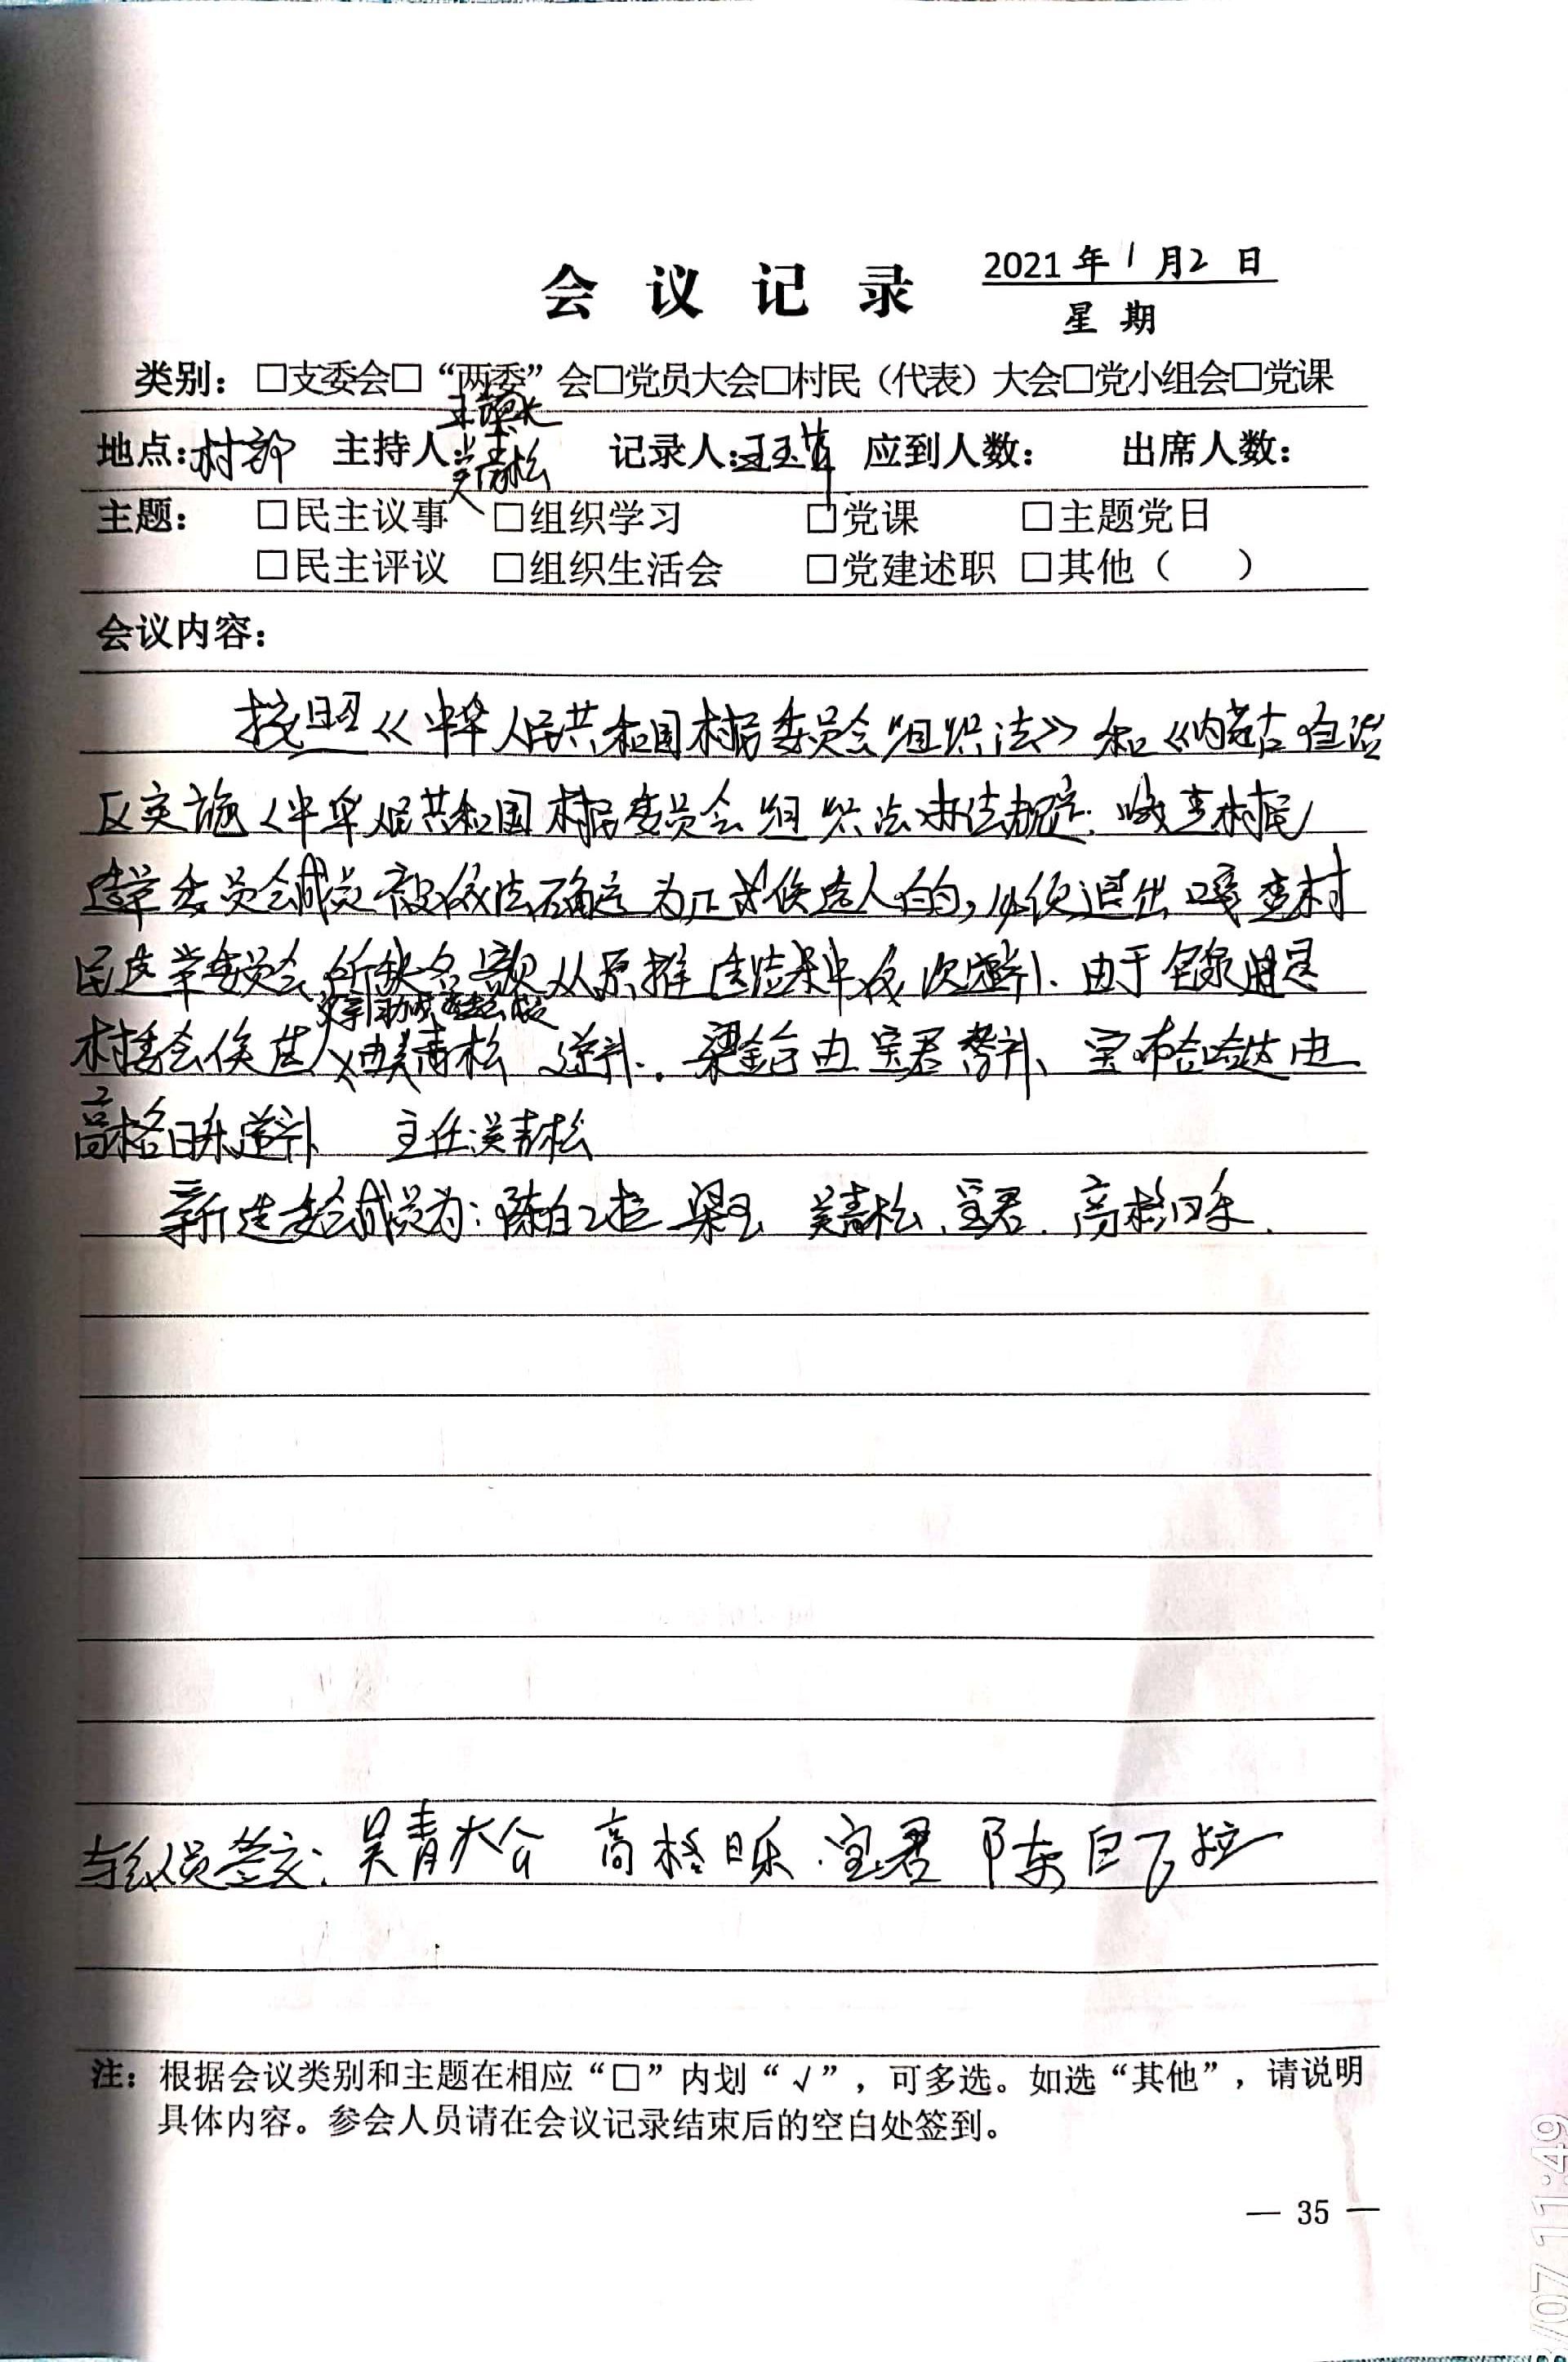 会议记录
2021年1月2日
星期
类别：□支委会□“两委”会□党员大会□村民（代表）大会□党小组会□党课
地点：村部 主持人 吴青松 记录人： 应到人数： 出席人数：
主题： □民主议事 □组织学习 □党课 □主题党日
□民主评议 □组织生活会 □党建述职 □其他（ ）
会议内容：
按照《中华人民共和国村民委员会组织法》和《内蒙古自治
区实施〈中华人民共和国村民委员会组织法办法规定：嘎查村民
选举委员会成员被依法确定为正式候选人的，必须退出嘎查村
民选举委员会所缺名额从原推选结果中依次递补、由于
村委会候选人 由吴青松 递补．梁金台由宝君替补、宝 由
高格日乐递补 主任吴青松
新选委会成员为：陈白乙拉 梁玉 吴青松、宝君．高格日乐．
与会人员签字：吴青松 高格日乐．宝君 陈白乙拉
注：根据会议类别和主题在相应“□”内划“√”，可多选。如选“其他”，请说明
具体内容。参会人员请在会议记录结束后的空白处签到。
— 35 —
/07 11:49